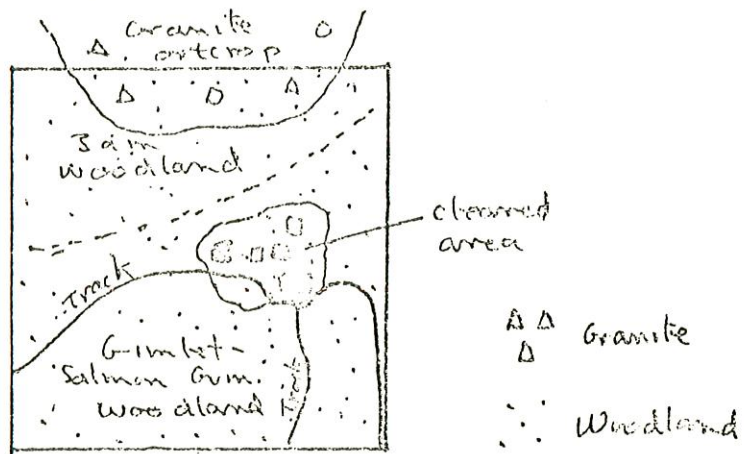 Granite
outcrop
woodland
cleared
area
Track
Gimlet-
Salmon Gum
woodland
Track
Granite
Woodland